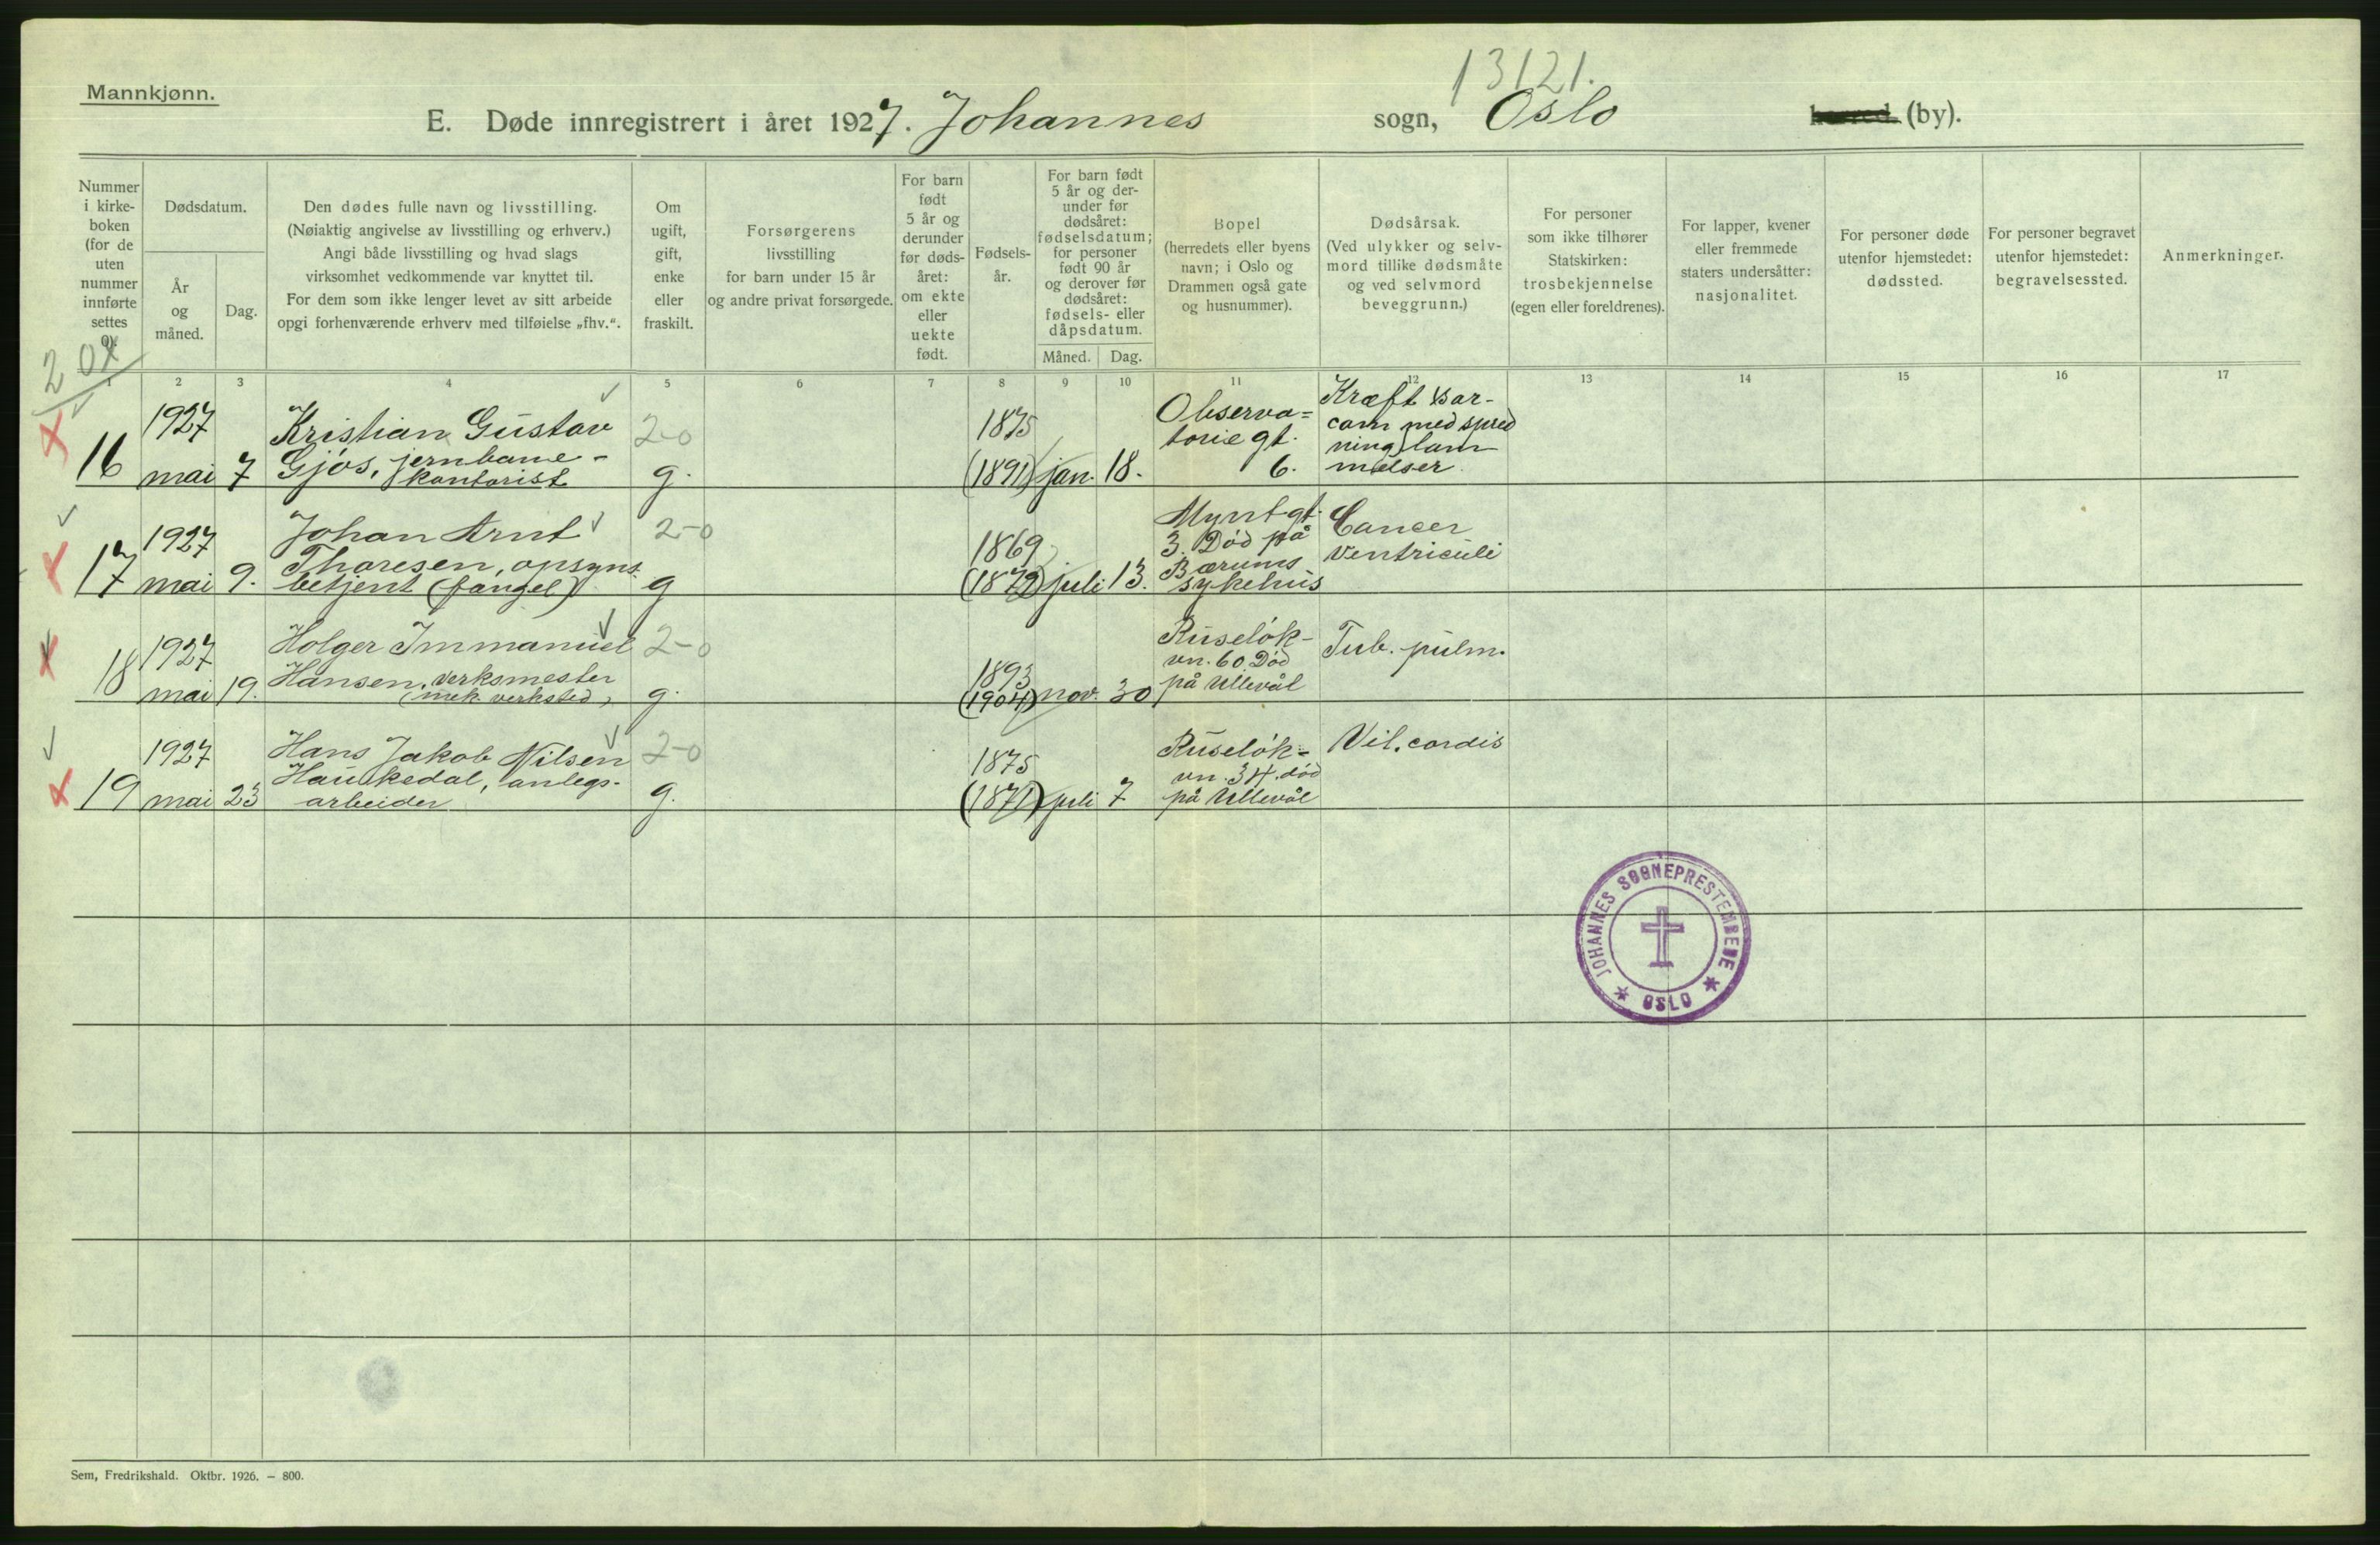 13121.
Mannkjønn.
E. Døde innregistrert i året 1927. Johannes sogn, Oslo (by).
Nummer
i kirke-
boken
(for de
uten
nummer
innførte
settes
0).
Dødsdatum.
År
og
måned.
Dag.
Den dødes fulle navn og livsstilling.
(Nøiaktig angivelse av livsstilling og erhverv.)
Angi både livsstilling og hvad slags
virksomhet vedkommende var knyttet til.
For dem som ikke lenger levet av sitt arbeide
opgi forhenværende erhverv med tilføielse „fhv.“.
Om
ugift,
gift,
enke
eller
fraskilt.
Forsørgerens
livsstilling
for barn under 15 år
og andre privat forsørgede.
For barn
født
5 år og
derunder
før døds-
året:
om ekte
eller
uekte
født.
Fødsels-
år.
For barn født
5 år og der-
under før
dødsåret:
fødselsdatum;
for personer
født 90 år
og derover før
dødsåret:
fødsels- eller
dåpsdatum.
Måned. Dag.
Bopel
(herredets eller byens
navn; i Oslo og
Drammen også gate
og husnummer).
Dødsårsak.
(Ved ulykker og selv-
mord tillike dødsmåte
og ved selvmord
beveggrunn.)
For personer
som ikke tilhører
Statskirken:
trosbekjennelse
(egen eller foreldrenes).
For lapper, kvener
eller fremmede
staters undersåtter:
nasjonalitet.
For personer døde
utenfor hjemstedet:
dødssted.
For personer begravet
utenfor hjemstedet:
begravelsessted.
Anmerkninger.
1 2 3 4 5 6 7 8 9 10 11 12 13 14 15 16 17
16
1927
mai 7
Kristian Gustav
Gjøs, jernbane-
kontorist
2-0
g.
1875
(1891) jan. 18.
Observa=
torie gt.
6.
Kræft sar-
com med spred
ning) lam
melser.
17
1927
mai 9.
Johan Arnt
Thoresen, opsyns
betjent (fængel)
2-0
g
1869
(1872) juli 13.
Myntgt.
3. Død på
Bærums
sykehus
Cancer
ventriculi
18
1927
mai 19.
Holger Immanuel
Hansen, verksmester
(mek. verksted)
2-0
g.
1893
(1904) nov. 30
Ruseløk-
vn. 60. Død
på Ullevål
Tub. pulm.
19
1927
mai 23
Hans Jakob Nilsen
Haukedal, anlegs-
arbeider
2-0
g.
1875
(1871) juli 7
Ruseløk-
vn. 34. død
på Ullevål
Vit. cordis
JOHANNES SOGNEPRESTEMBEDE
OSLO
Sem, Fredrikshald. Oktbr. 1926. — 800.